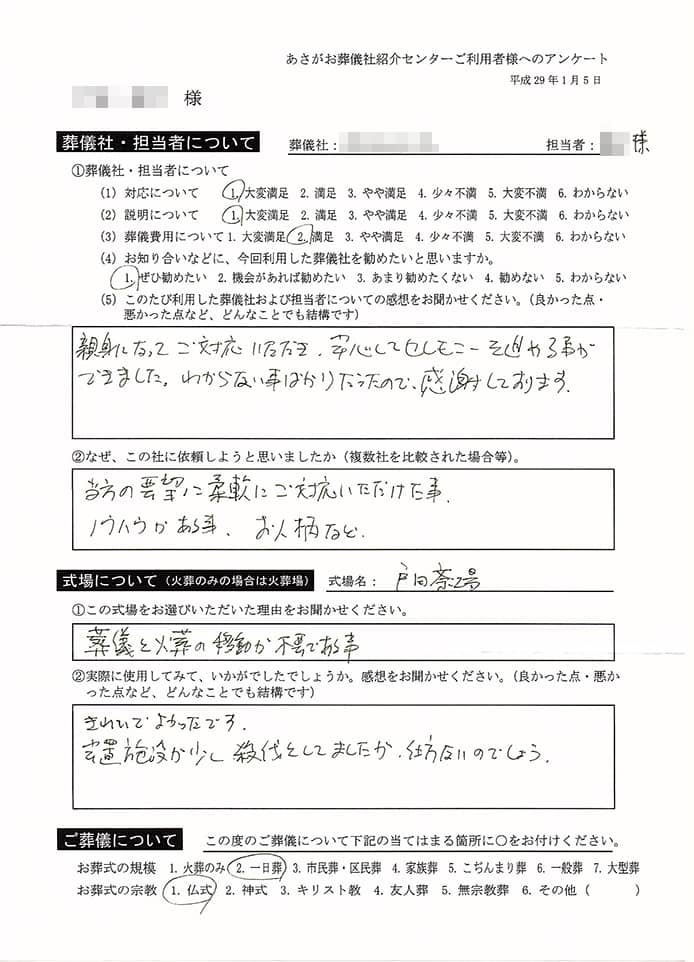 あさがお葬儀社紹介センターご利用者様へのアンケート
平成29年1月5日
様
葬儀社・担当者について 葬儀社： 担当者： 様
①葬儀社・担当者について
(1) 対応について 1. 大変満足 2. 満足 3. やや満足 4. 少々不満 5. 大変不満 6. わからない
(2) 説明について 1. 大変満足 2. 満足 3. やや満足 4. 少々不満 5. 大変不満 6. わからない
(3) 葬儀費用について 1. 大変満足 2. 満足 3. やや満足 4. 少々不満 5. 大変不満 6. わからない
(4) お知り合いなどに、今回利用した葬儀社を勧めたいと思いますか。
1. ぜひ勧めたい 2. 機会があれば勧めたい 3. あまり勧めたくない 4. 勧めない 5. わからない
(5) このたび利用した葬儀社および担当者についての感想をお聞かせください。（良かった点・
悪かった点など、どんなことでも結構です）
親身になってご対応いただき、安心してセレモニーを進める事が
できました。わからない事ばかりだったので、感謝しております。
②なぜ、この社に依頼しようと思いましたか（複数社を比較された場合等）。
当方の要望に柔軟にご対応いただけた事、
ノウハウがある事、お人柄など。
式場について（火葬のみの場合は火葬場） 式場名： 戸田斎場
①この式場をお選びいただいた理由をお聞かせください。
葬儀と火葬の移動が不要である事
②実際に使用してみて、いかがでしたでしょうか。感想をお聞かせください。（良かった点・悪か
った点など、どんなことでも結構です）
きれいでよかったです。
安置施設が少し殺伐としてましたが、仕方ないのでしょう。
ご葬儀について この度のご葬儀について下記の当てはまる箇所に〇をお付けください。
お葬式の規模 1. 火葬のみ 2. 一日葬 3. 市民葬・区民葬 4. 家族葬 5. こぢんまり葬 6. 一般葬 7. 大型葬
お葬式の宗教 1. 仏式 2. 神式 3. キリスト教 4. 友人葬 5. 無宗教葬 6. その他（ ）